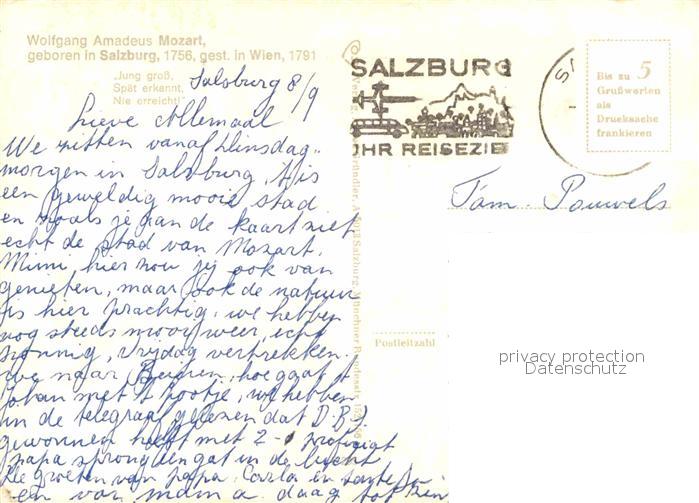 Wolfgang Amadeus Mozart,
geboren in Salzburg, 1756, gest. in Wien, 1791
„Jung groß,
Spät erkannt,
Nie erreicht!"
Salsburg 8/9
Lieve Allemaal
We zitten vanaf dinsdag..
morgen in Salsburg. 't is
een geweldig mooie stad
en zoals je aan de kaart ziet
echt de stad van Mozart.
Mimi, hier zou jij ook van
genieten, maar ook de natuur
is hier prachtig. we hebben
nog steeds mooi weer, echt
zonnig, vrijdag vertrekken
we naar Beieren, hoe gaat 't
Johan met 't pootje, we hebben
in de telegraaf gelezen dat D.B.S.
gewonnen heeft met 2-0 proficiat
papa sprong een gat in de lucht
De groeten van papa Carla en tante
en van mama. daag tot
SALZBURG
IHR REISEZIEL
Bis zu 5
Grußworten
als
Drucksache
frankieren
Fam. Pouwels
Postleitzahl
privacy protection
Datenschutz